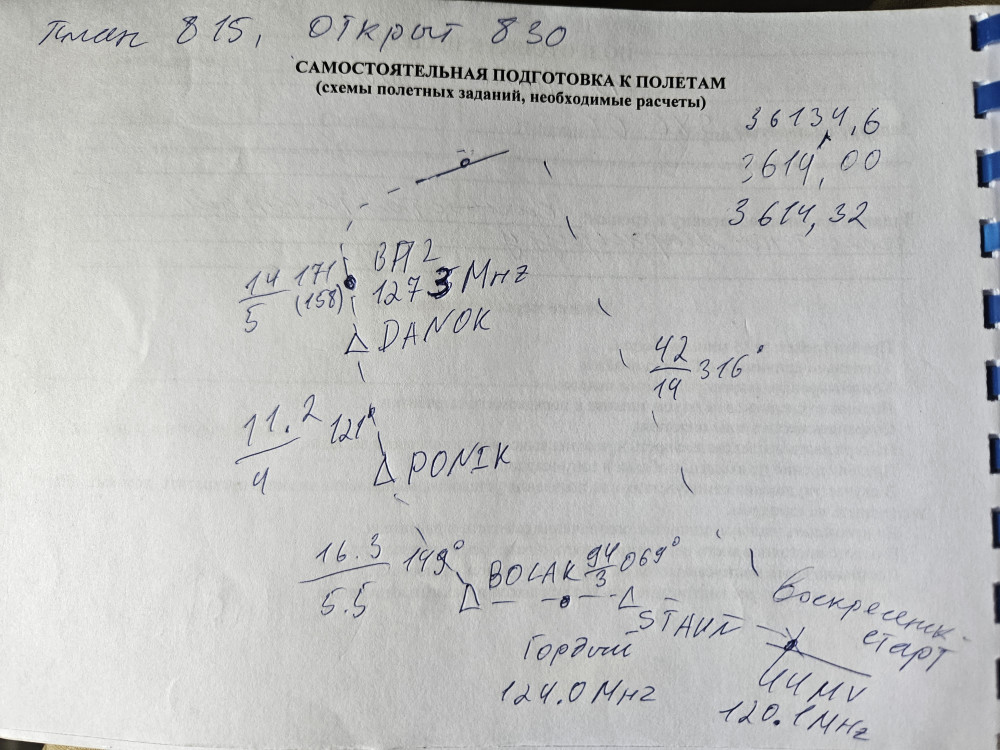 План 815, Открыт 830
САМОСТОЯТЕЛЬНАЯ ПОДГОТОВКА К ПОЛЕТАМ
(схемы полетных заданий, необходимые расчеты)
36134,6
3614,00
3614,32
14/5 171 (158)
ВП2
127 3 MHz
DANOK
42/14 316°
11.2/4 121°
PONIK
16.3/5.5 149°
BOLAK 94/3 069°
Воскресенск-
старт
Гордый
124.0 Мнг
UUMV
120.1 MHz